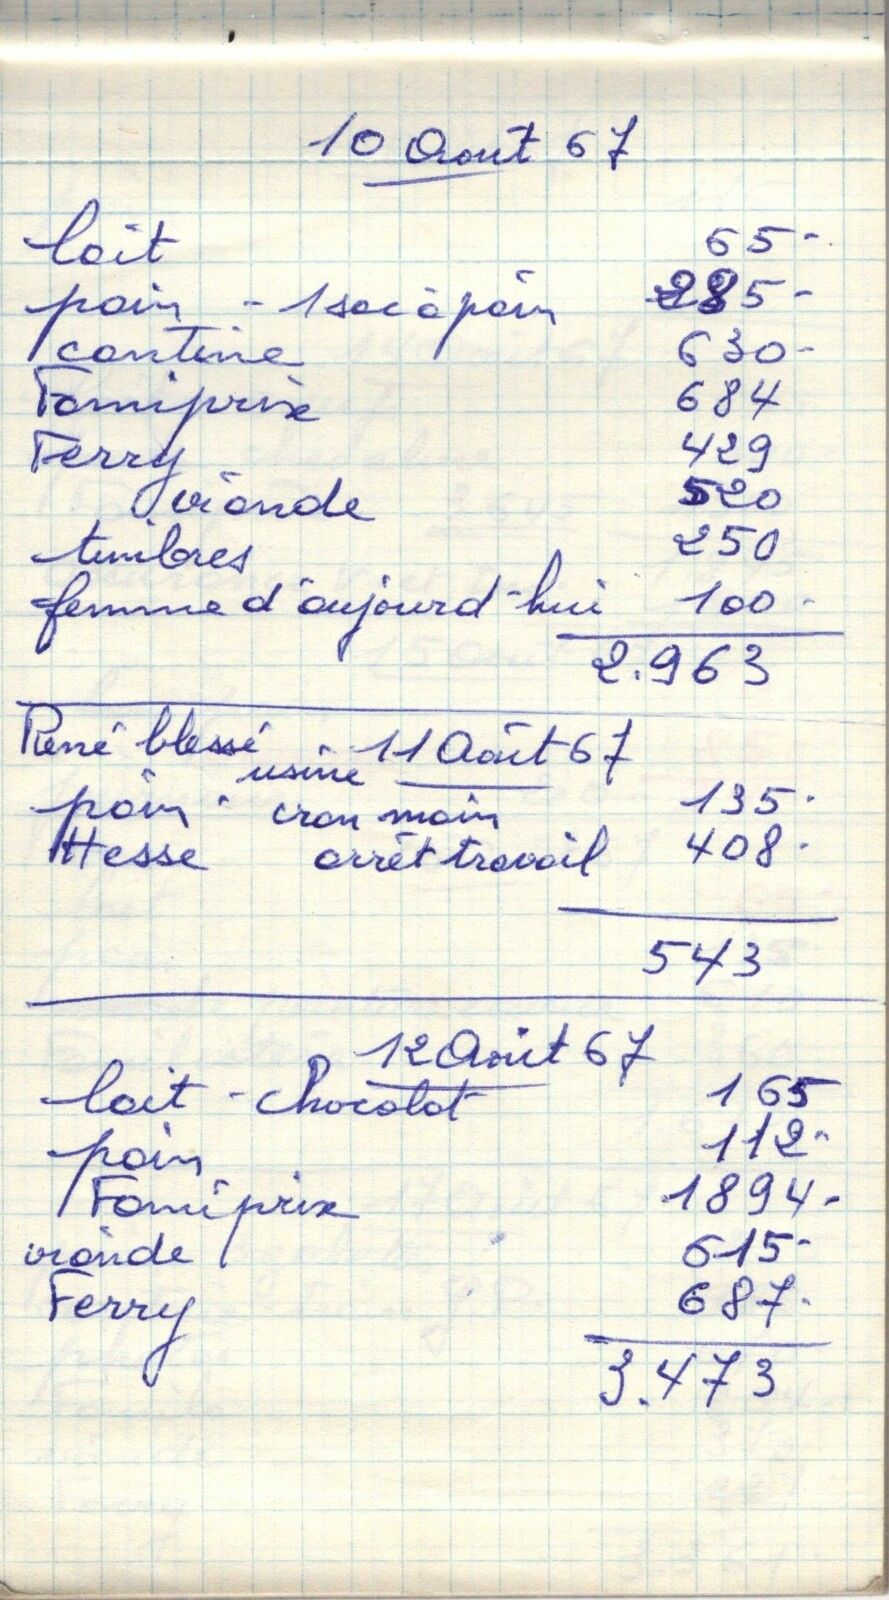 10 Août 67
lait 65-
pain - 1 sac à pain 285-
cantine 630-
Famiprix 684
Ferry 429
viande 520
timbres 250
femme d'aujourd-hui 100-
2.963
René blessé 11 Août 67
usine
pain - cran main 135-
Hesse arrêt travail 408-
543
12 Août 67
lait - chocolat 165
pain 112-
Famiprix 1894-
viande 615-
Ferry 687-
3.473